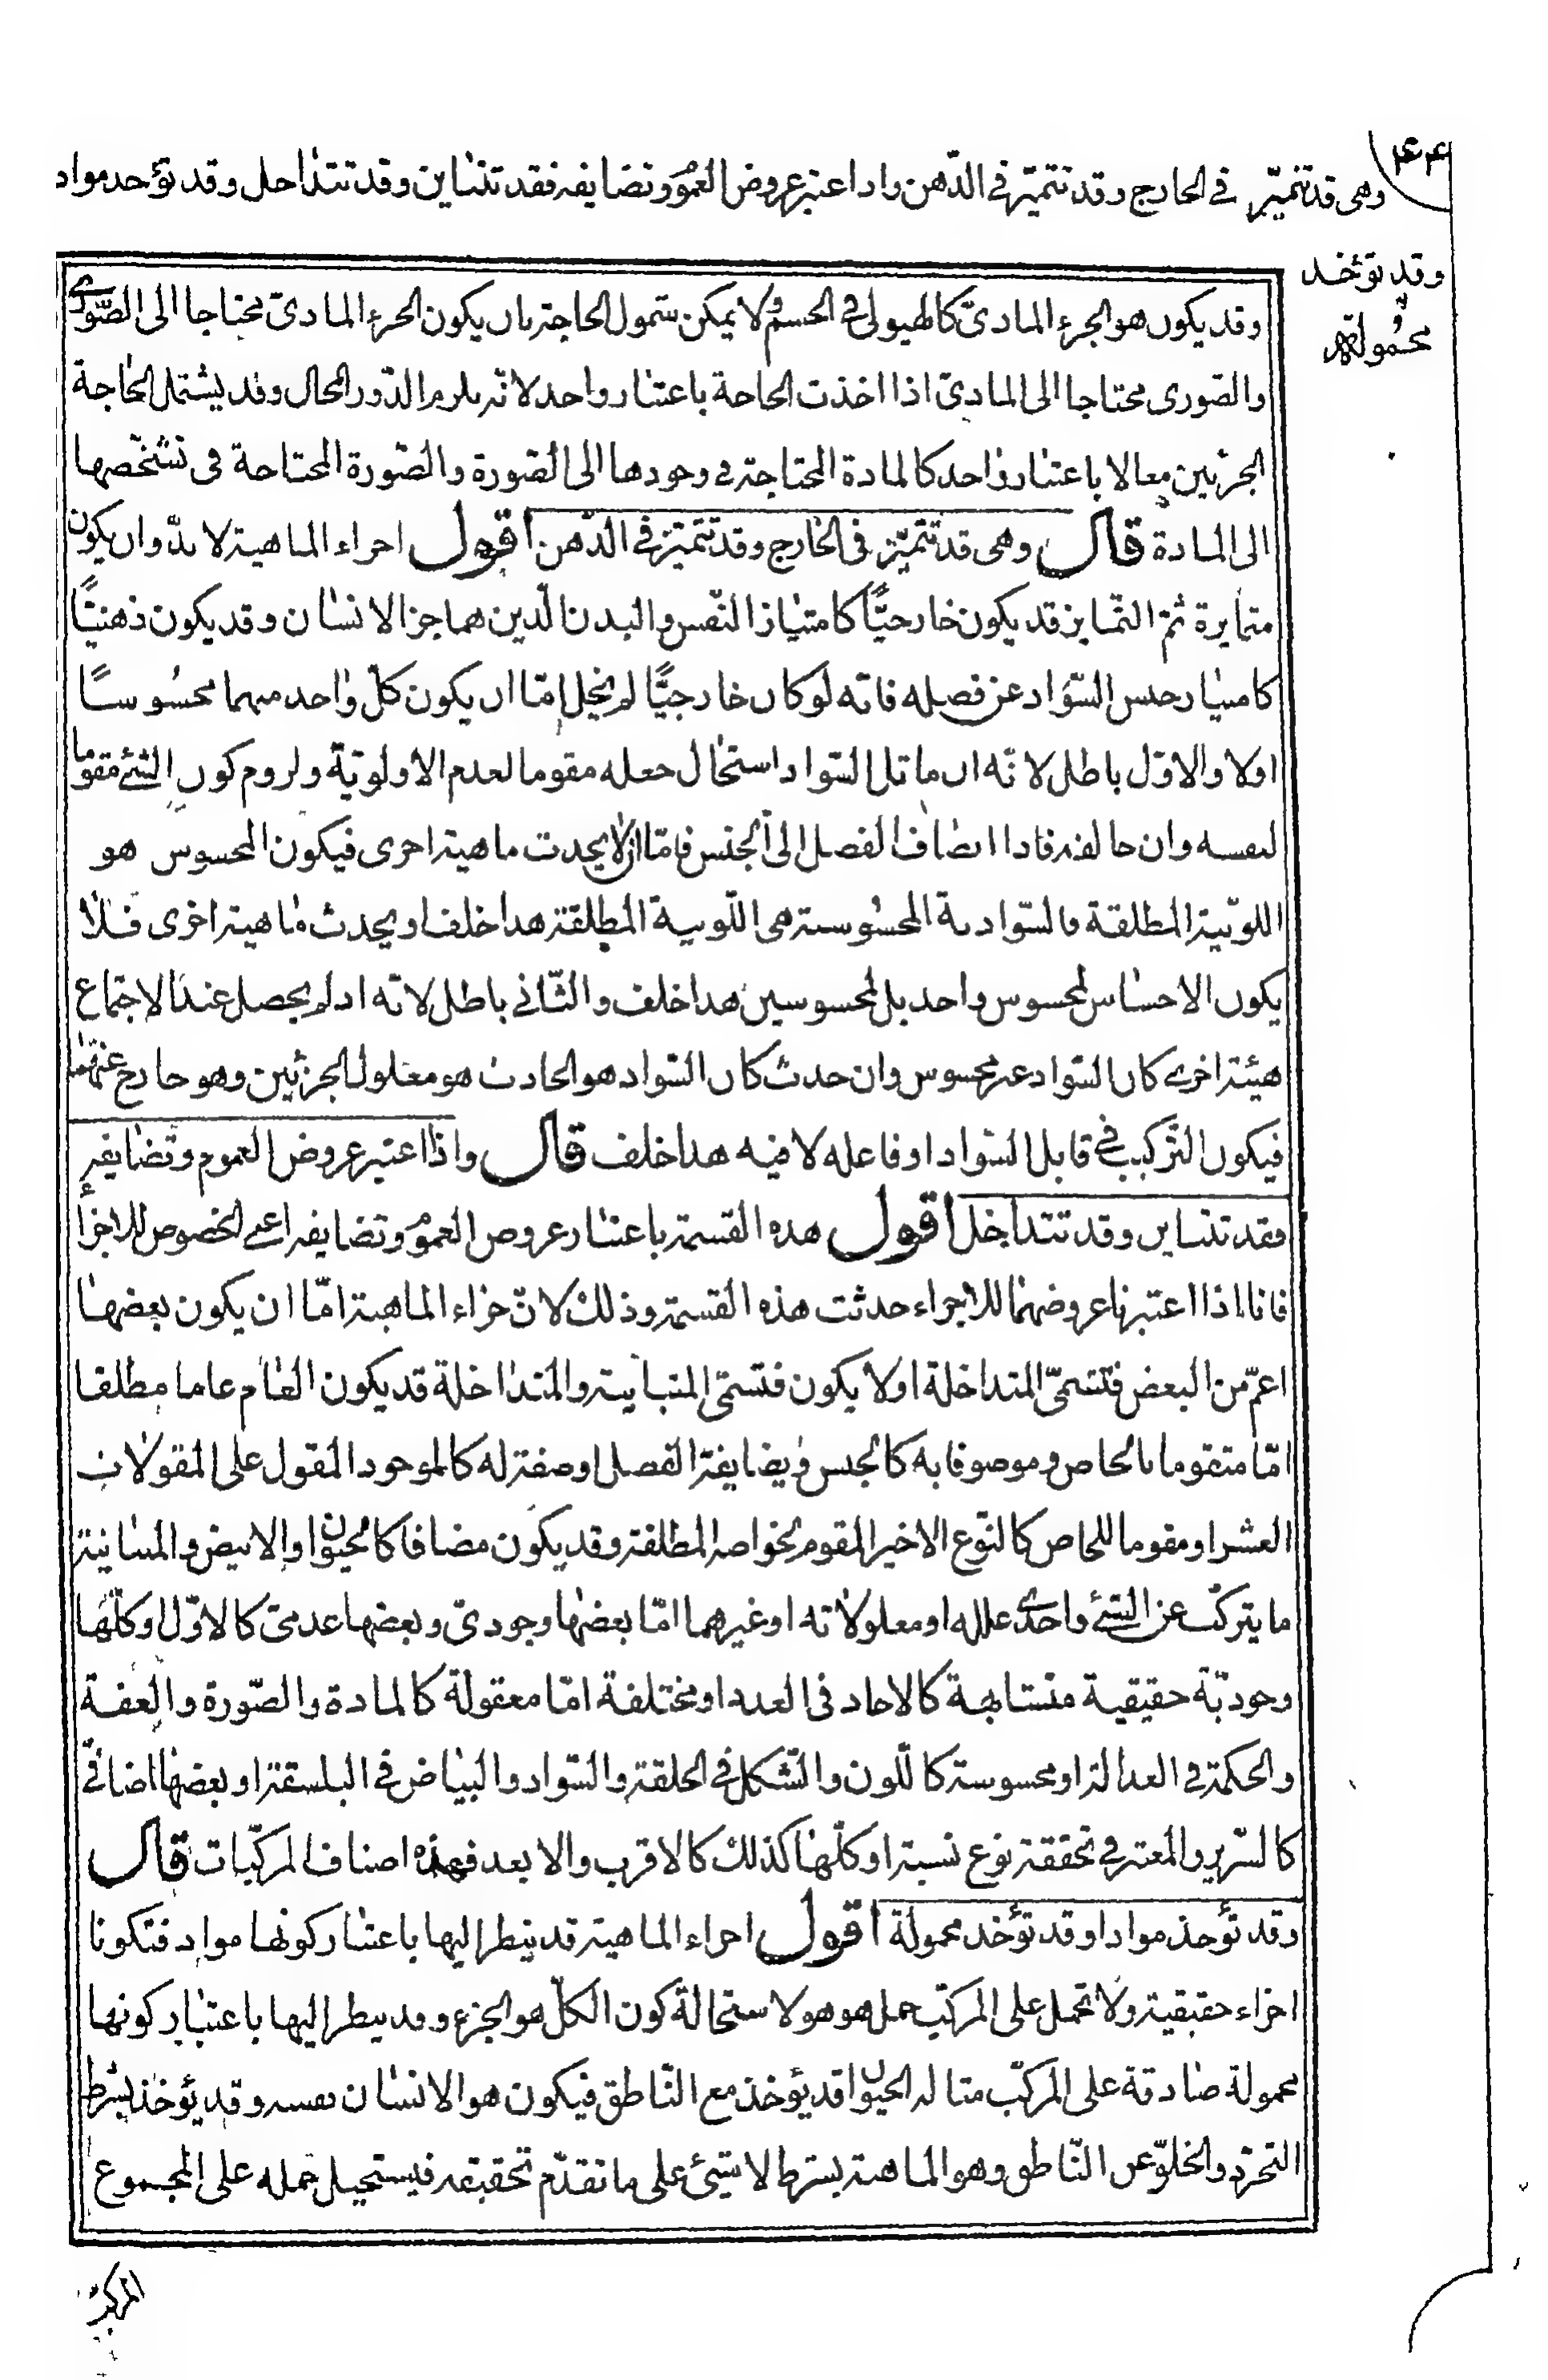 ٤٤
وهى قد تتميّز فى الخارج وقد تتميّز فى الذّهن واذا اعتبر عروض العموم وتضايفه فقد تتباين وقد تتداخل وقد تؤخذ مواد
وقد تؤخذ
محمولة
وقد يكون هو الجزء المادىّ كالهيولى فى الجسم ولا يمكن شمول الحاجة بان يكون الجزء المادىّ محتاجا الى الصّورى
والصّورى محتاجا الى المادىّ اذا اخذت الحاجة باعتبار واحد لانّه يلزم الدّور المحال وقد يشتمل الحاجة
الجزئين معا لا باعتبار واحد كالمادة المحتاجة فى وجودها الى الصّورة والصّورة المحتاجة فى تشخّصها
الى المادة قال وهى قد تتميّز فى الخارج وقد تتميّز فى الذّهن اقول اجزاء الماهية لا بدّ وان يكون
متمايزة ثمّ التّمايز قد يكون خارجيًّا كامتياز النّفس والبدن الّذين هما جزا الانسان وقد يكون ذهنيًّا
كامتياز جنس السّواد عن فصله فانّه لو كان خارجيًّا لم يخل امّا ان يكون كلّ واحد منهما محسوسًا
اولا والاوّل باطل لانّه ان ماثل السّواد استحال جعله مقوما لعدم الاولويّة ولزوم كون الشّئ مقوّما
لنفسه وان خالفه فاذا انضاف الفصل الى الجنس فامّا ان لا يحدث ماهية اخرى فيكون المحسوس هو
اللّونيّة المطلقة فالسّوادية المحسوسة هى اللّونية المطلقة هذا خلف او يحدث ماهية اخرى فلا
يكون الاحساس لمحسوس واحد بل لمحسوسين هذا خلف والثّانى باطل لانّه اذ لم يحصل عند الاجتماع
هيئة اخرى كان السّواد غير محسوس وان حدث كان السّواد هو الحادث هو معلول الجزئين وهو خارج عنهما
فيكون التّركيب فى قابل السّواد او فاعله لا فيه هذا خلف قال واذا اعتبر عروض العموم وتضايفه
فقد تتباين وقد تتداخل اقول هذه القسمة باعتبار عروض العموم وتضايفه اعنى الخصوص للاجزاء
فانا اذا اعتبرنا عروضهما للاجزاء حدثت هذه القسمة وذلك لانّ جزاء الماهية امّا ان يكون بعضها
اعمّ من البعض فتسمّى المتداخلة اولا يكون فتسمّى المتباينة والمتداخلة قد يكون العام عاما مطلقا
امّا متقوما بالخاص وموصوفا به كالجنس ويضايفة الفصل او صفة له كالموجود المقول على المقولات
العشر او مقوما للخاص كالنّوع الاخير المقوم لخواصه المطلقة وقد يكون مضافا كالحيوان والابيض والمباينة
ما يتركّب عن الشّئ واحدى علله او معلولاته او غيرهما امّا بعضها وجودىّ وبعضها عدمىّ كالاوّل او كلّها
وجوديّة حقيقية متشابهة كالاحاد فى العدد او مختلفة امّا معقولة كالمادة والصّورة والعفة
والحكمة فى العدالة او محسوسة كاللّون والشّكل فى الخلقة والسّواد والبياض فى البلقة او بعضها اضافىّ
كالسّرير والمعتبر فى تحققة نوع نسبة او كلّها كذلك كالاقرب والابعد فهذه اصناف المركّبات قال
وقد تؤخذ موادا وقد تؤخذ محمولة اقول اجزاء الماهية قد ينظر اليها باعتبار كونها مواد فتكونا
اجزاء حقيقية ولا تحمل على المركّب حمل هو هو لاستحالة كون الكلّ هو الجزء وقد ينظر اليها باعتبار كونها
محمولة صادقة على المركّب مثاله الحيوان قد يؤخذ مع النّاطق فيكون هو الانسان نفسه وقد يؤخذ بشرط
التجرّد والخلوّ عن النّاطق وهو الماهية بشرط لا شئ على ما تقدّم تحقيقه فيستحيل حمله على المجموع
المركّب